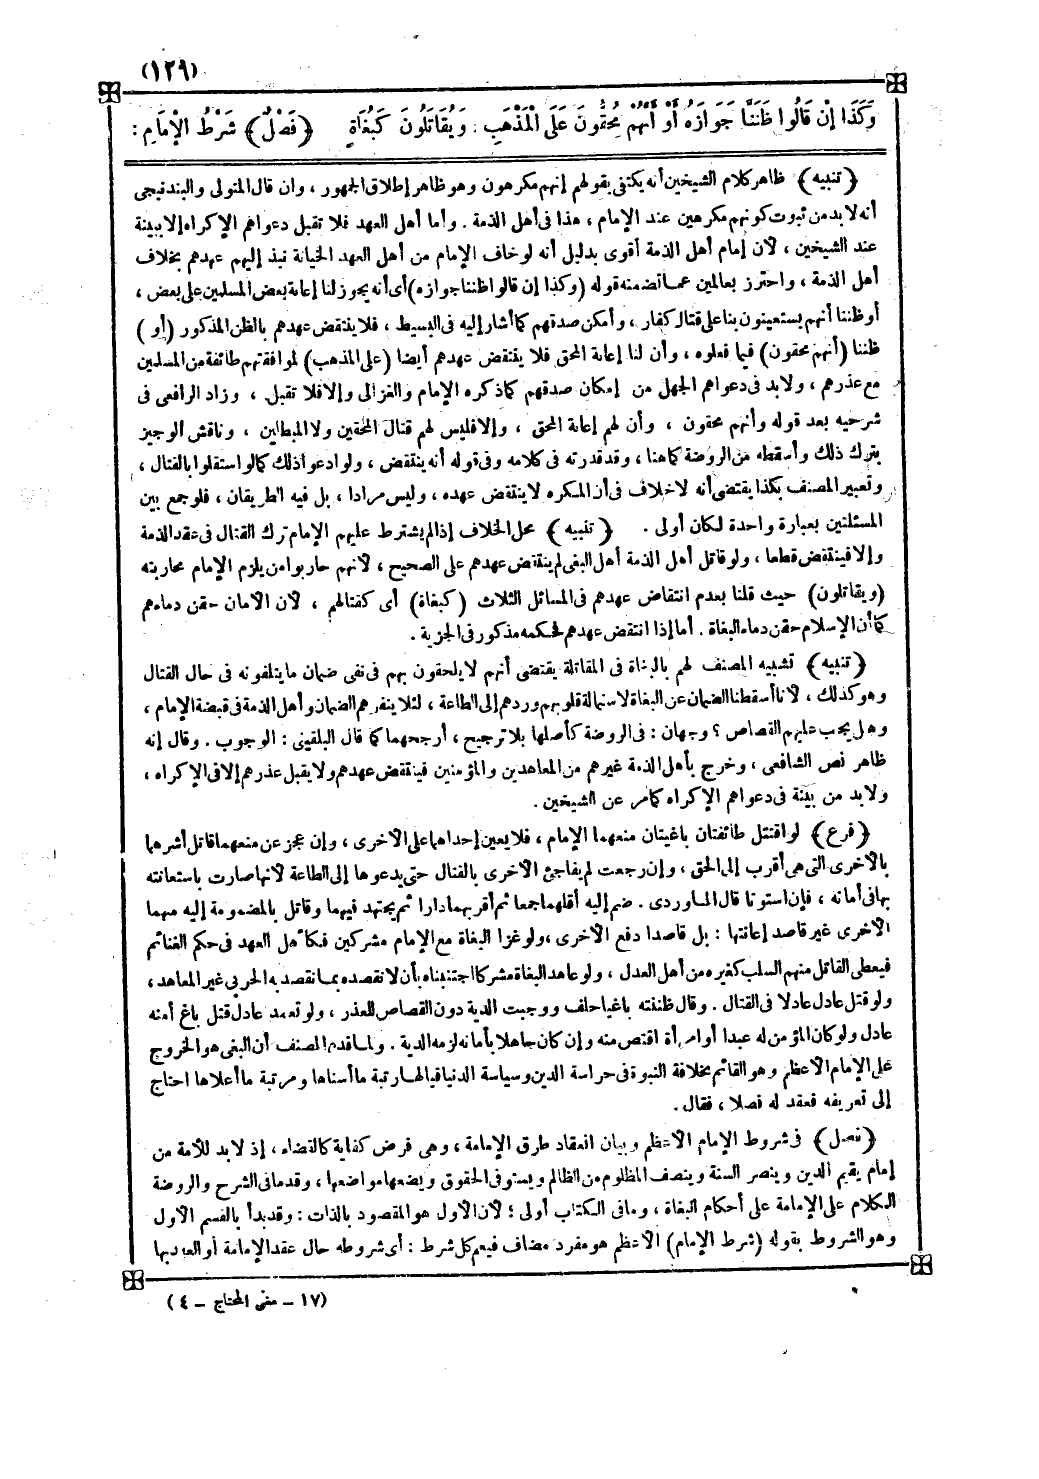 (١٢٩)
وَكَذَا إِنْ قَالُوا ظَنَنَّا جَوَازَهُ أَوْ أَنَّهُمْ مُحِقُّونَ عَلَى الْمَذْهَبِ ، وَيُقَاتَلُونَ كَبُغَاةٍ ﴿فَصْلٌ﴾ شَرْطُ الْإِمَامِ :
﴿تنبيه﴾ ظاهر كلام الشيخين أنه يكتفى بقولهم إنهم مكرهون وهو ظاهر إطلاق الجمهور ، وان قال المتولى والبندنيجى
أنه لابد من ثبوت كونهم مكرهين عند الإمام ، هذا فى أهل الذمة . وأما أهل العهد فلا تقبل دعواهم الإكراه إلا ببينة
عند الشيخين ، لأن إمام أهل الذمة أقوى بدليل أنه لو خاف الإمام من أهل العهد الخيانة نبذ إليهم عهدهم بخلاف
أهل الذمة ، واحترز بعالمين عما تضمنه قوله (وكذا إن قالوا ظننا جوازه) أى أنه يجوز لنا إعانة بعض المسلمين على بعض ،
أو ظننا أنهم يستعينون بنا على قتال كفار ، وأمكن صدقهم كما أشار إليه فى البسيط ، فلا ينتقض عهدهم بالظن المذكور (أو)
ظننا (أنهم محقون) فيما فعلوه ، وأن لنا إعانة المحق فلا ينتقض عهدهم أيضا (على المذهب) لموافقتهم طائفة من المسلمين
مع عذرهم ، ولابد فى دعواهم الجهل من إمكان صدقهم كما ذكره الإمام والغزالى وإلا فلا تقبل ، وزاد الرافعى فى
شرحيه بعد قوله وأنهم محقون ، وأن لهم إعانة المحق ، وإلا فليس لهم قتال المحقين ولا المبطلين ، وناقش الوجيز
بترك ذلك وأسقطه من الروضة كما هنا ، وقد قدرته فى كلامه وفى قوله أنه ينتقض ، ولو ادعوا ذلك كما لو استقلوا بالقتال ،
وتعبير المصنف بكذا يقتضى أنه لا خلاف فى أن المكره لا ينتقض عهده ، وليس مرادا ، بل فيه الطريقان ، فلو جمع بين
المسئلتين بعبارة واحدة لكان أولى . ﴿تنبيه﴾ محل الخلاف إذا لم يشترط عليهم الإمام ترك القتال فى عقد الذمة
وإلا فينتقض قطعا ، ولو قاتل أهل الذمة أهل البغى لم ينتقض عهدهم على الصحيح ، لأنهم حاربوا من يلزم الإمام محاربته
(ويقاتلون) حيث قلنا بعدم انتقاض عهدهم فى المسائل الثلاث (كبغاة) أى كقتالهم ، لأن الأمان حقن دماءهم
كما أن الإسلام حقن دماء البغاة . أما إذا انتقض عهدهم فحكمه مذكور فى الجزية .
﴿تنبيه﴾ تشبيه المصنف لهم بالبغاة فى المقاتلة يقتضى أنهم لا يلحقون بهم فى نفى ضمان ما يتلفونه فى حال القتال
وهو كذلك ، لأنا أسقطنا الضمان عن البغاة لاستمالة قلوبهم وردهم إلى الطاعة ، لئلا ينفرهم الضمان وأهل الذمة فى قبضة الإمام ،
وهل يجب عليهم القصاص ؟ وجهان : فى الروضة كأصلها بلا ترجيح ، أرجحهما كما قال البلقينى : الوجوب . وقال إنه
ظاهر نص الشافعى ، وخرج بأهل الذمة غيرهم من المعاهدين والمؤمنين فينتقض عهدهم ولا يقبل عذرهم إلا فى الإكراه ،
ولابد من بينة فى دعواهم الإكراه كما مر عن الشيخين .
﴿فرع﴾ لو اقتتل طائفتان باغيتان منعهما الإمام ، فلا يعين إحداهما على الأخرى ، وإن عجز عن منعهما قاتل أشرهما
بالأخرى التى هى أقرب إلى الحق ، وإن رجعت لم يفاجئ الأخرى بالقتال حتى يدعوها إلى الطاعة لأنها صارت باستعانته
بها فى أمانه ، فإن استوتا قال الماوردى . ضم إليه أقلهما جمعا ثم أقربهما دارا ثم يجتهد فيهما وقاتل بالمضمومة إليه منهما
الأخرى غير قاصد إعانتها : بل قاصدا دفع الأخرى ، ولو غزا البغاة مع الإمام مشركين فكأهل العهد فى حكم الغنائم
فيعطى القاتل منهم السلب كغيره من أهل العدل ، ولو عاهد البغاة مشركا اجتنبناه بأن لا نقصده بما نقصد به الحربى غير المعاهد ،
ولو قتل عادل عادلا فى القتال . وقال ظننته باغيا حلف ووجبت الدية دون القصاص للعذر ، ولو تعمد عادل قتل باغ أمنه
عادل ولو كان المؤمن له عبدا أو امرأة اقتص منه وإن كان جاهلا بأمانه لزمه الدية . ولما قدم المصنف أن البغى هو الخروج
على الإمام الأعظم وهو القائم بخلافة النبوة فى حراسة الدين وسياسة الدنيا فيالها رتبة ما أسناها ومرتبة ما أعلاها احتاج
إلى تعريفه فعقد له فصلا ، فقال .
﴿فصل﴾ فى شروط الإمام الأعظم وبيان انعقاد طرق الإمامة ، وهى فرض كفاية كالقضاء ، إذ لابد للأمة من
إمام يقيم الدين وينصر السنة وينصف المظلوم من الظالم ويستوفى الحقوق ويضعها مواضعها ، وقدما فى الشرح والروضة
الكلام على الإمامة على أحكام البغاة ، وما فى الكتاب أولى ؛ لأن الأول هو المقصود بالذات : وقد بدأ بالقسم الأول
وهو الشروط بقوله (شرط الإمام) الأعظم هو مفرد مضاف فيعم كل شرط : أى شروطه حال عقد الإمامة أو العهد بها
(١٧ - مغنى المحتاج - ٤)